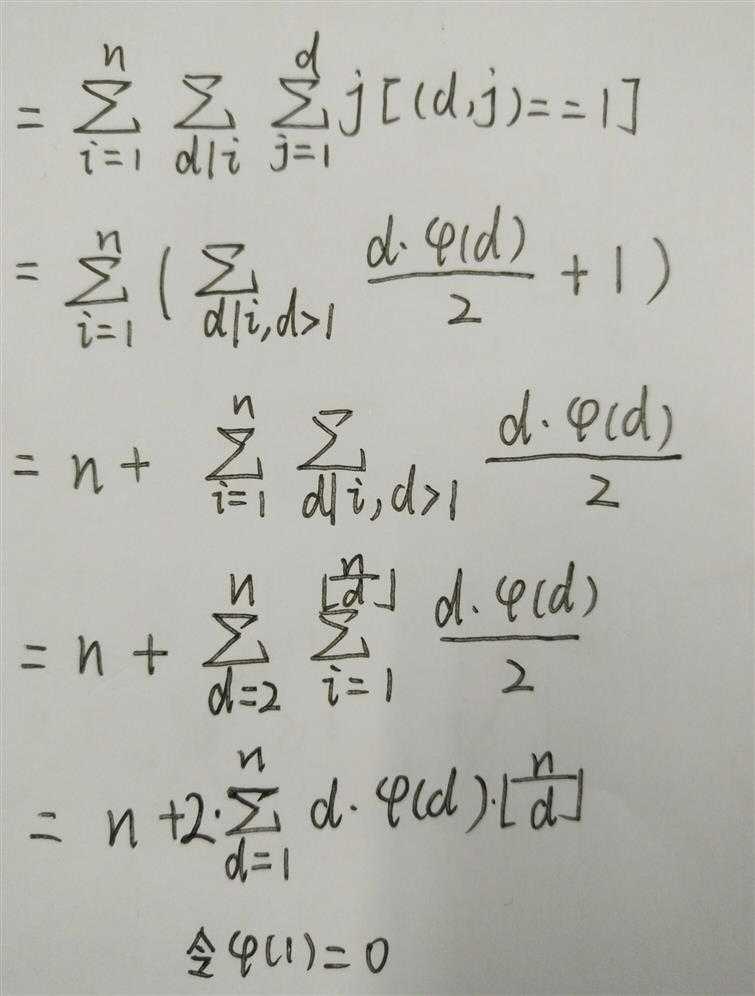 = \sum_{i=1}^{n} \sum_{d|i} \sum_{j=1}^{d} j[(d,j)==1]
= \sum_{i=1}^{n} ( \sum_{d|i,d>1} \frac{d·φ(d)}{2} + 1 )
= n + \sum_{i=1}^{n} \sum_{d|i,d>1} \frac{d·φ(d)}{2}
= n + \sum_{d=2}^{n} \sum_{i=1}^{⌊\frac{n}{d}⌋} \frac{d·φ(d)}{2}
= n + 2·\sum_{d=1}^{n} d·φ(d)·⌊\frac{n}{d}⌋
令 φ(1) = 0